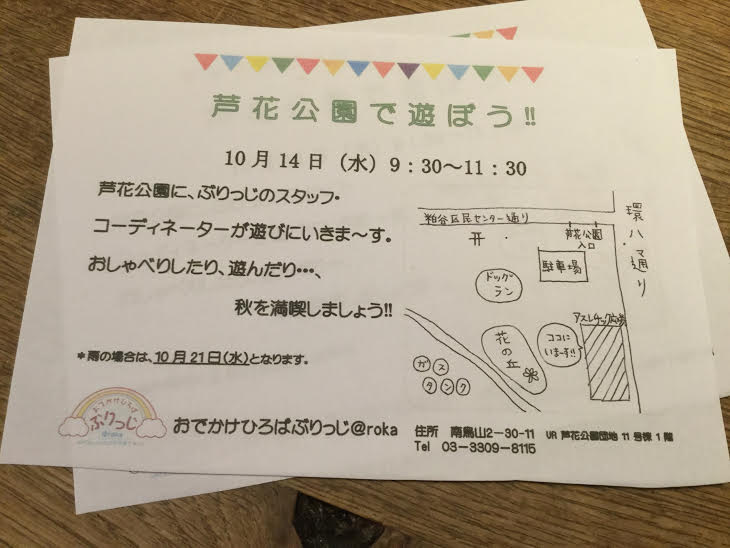 芦花公園で遊ぼう!!
10月14日（水）9：30～11：30
芦花公園に、ぷりっじのスタッフ・
コーディネーターが遊びにいきま～す。
おしゃべりしたり、遊んだり…、
秋を満喫しましょう!!
＊雨の場合は、10月21日(水)となります。
粕谷区民センター通り
芦花公園
入口
環ハマ通り
駐車場
ドッグ
ラン
アスレチック広場
花の丘
ココに
いまーす!!
ガス
タンク
おでかけひろば
ぶりっじ
@roka
おでかけひろばぶりっじ@roka
住所 南烏山2－30－11 UR 芦花公園団地 11号棟 1階
Tel 03－3309－8115